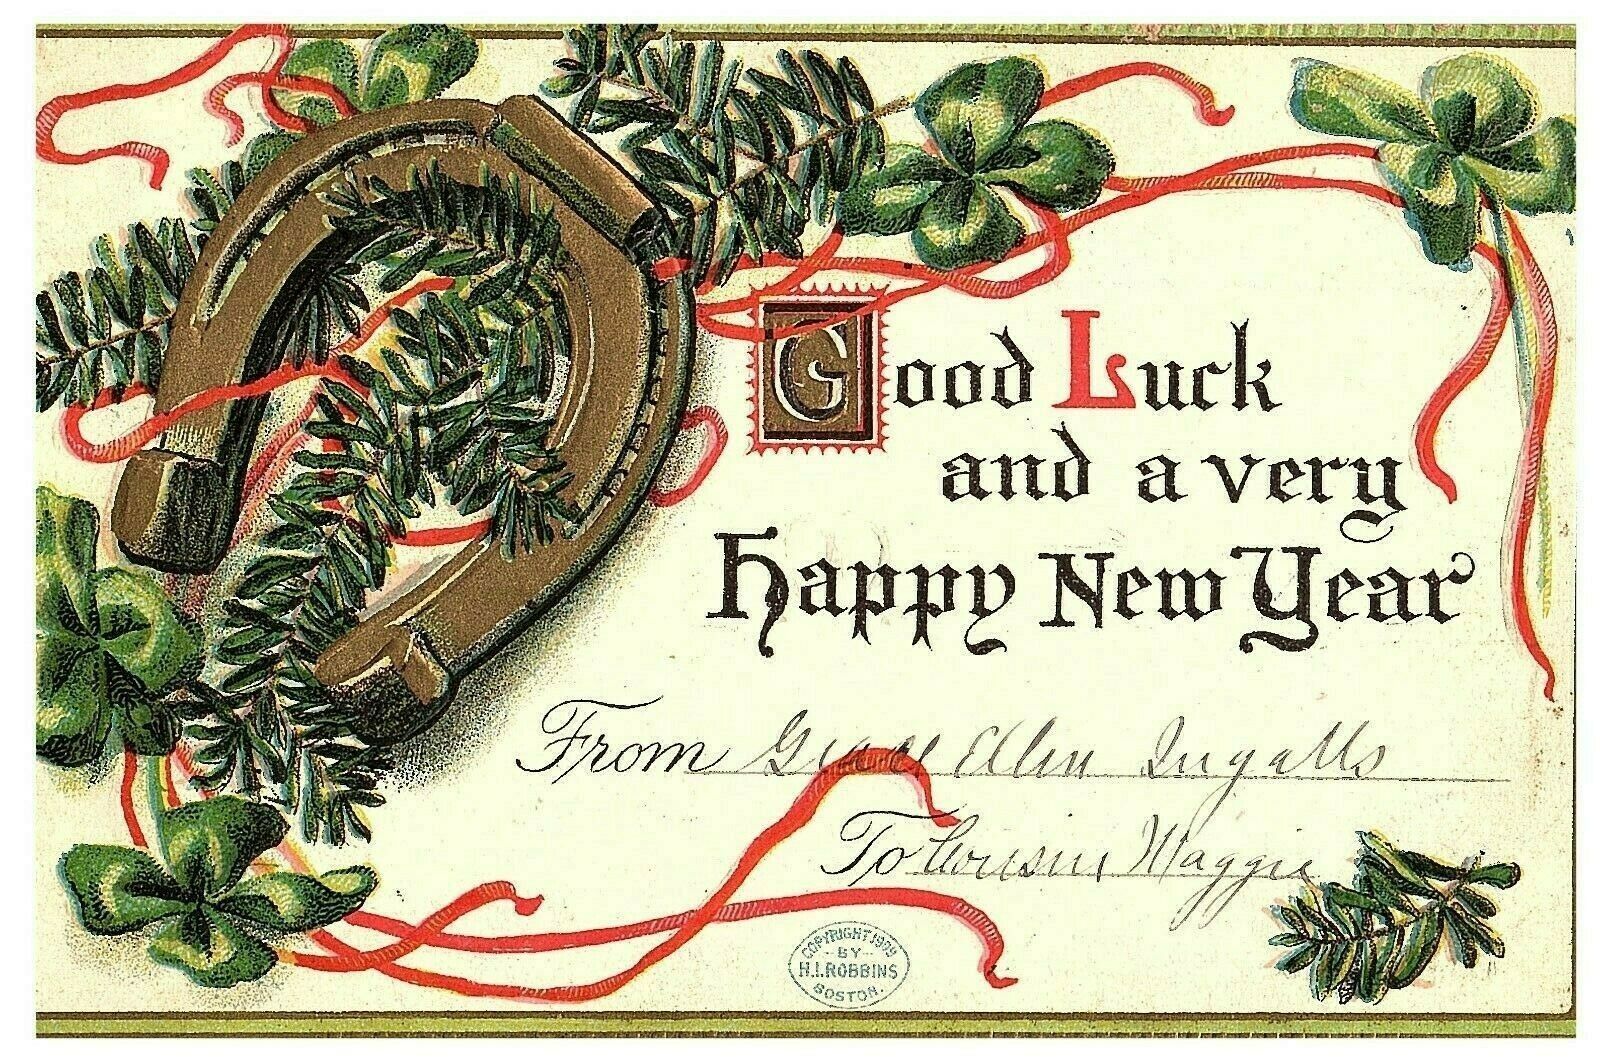 Good Luck
and a very
Happy New Year
From Grace Ellen Ingalls
To Cousin Maggie
COPYRIGHT 1909
BY
H.I. ROBBINS
BOSTON.